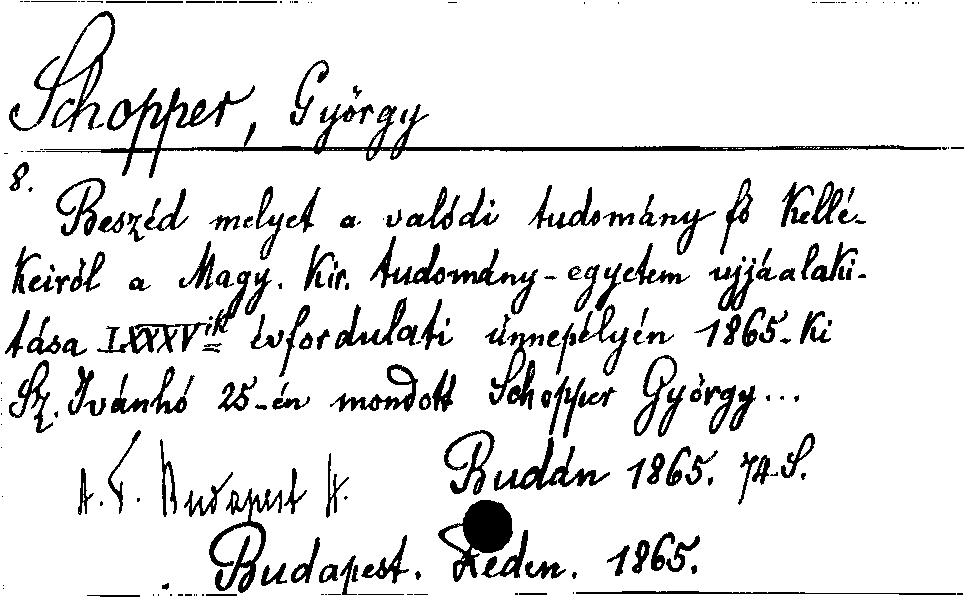 Schopper, György
8.
Beszéd melyet a valódi tudomány fő kellé-
keiről a Magy. kir. tudomány-egyetem ujjáalaki-
tása LXXXVik évfordulati ünnepélyén 1865-ki
Sz. Ivánhó 25-én mondott Schopper György...
Budán 1865. 74 S.
Budapest
Budapest. Reden. 1865.